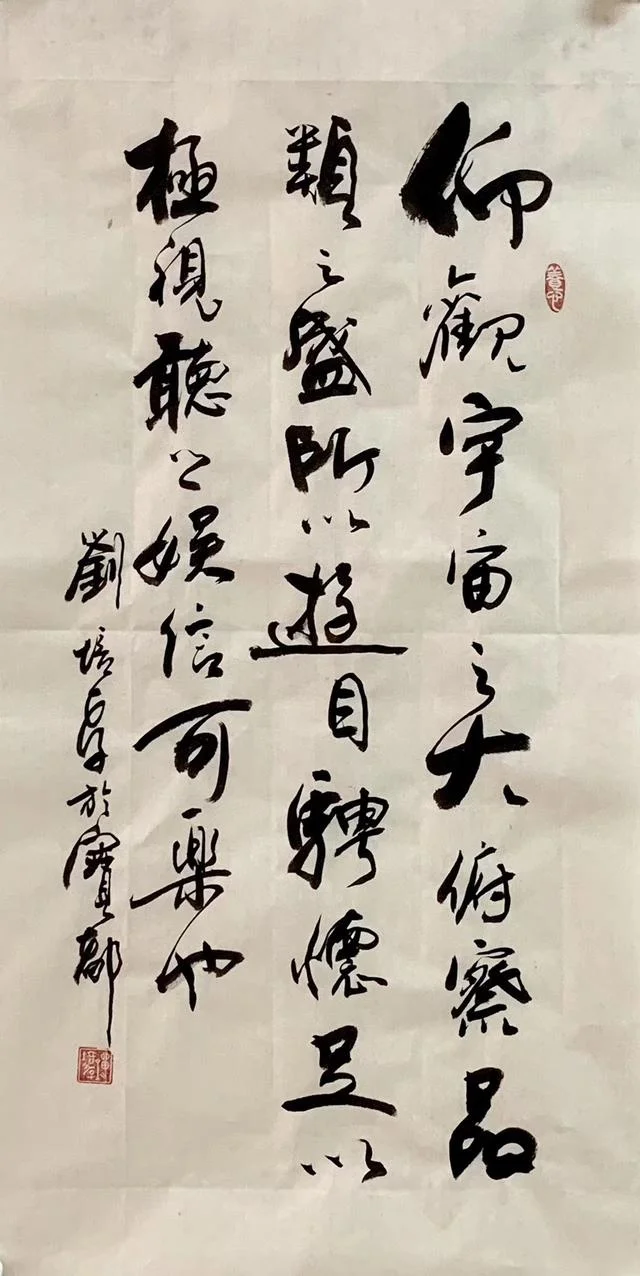 仰觀宇宙之大俯察品
類之盛所以遊目騁懷足以
極視聽之娛信可樂也
劉培厚於寶郡